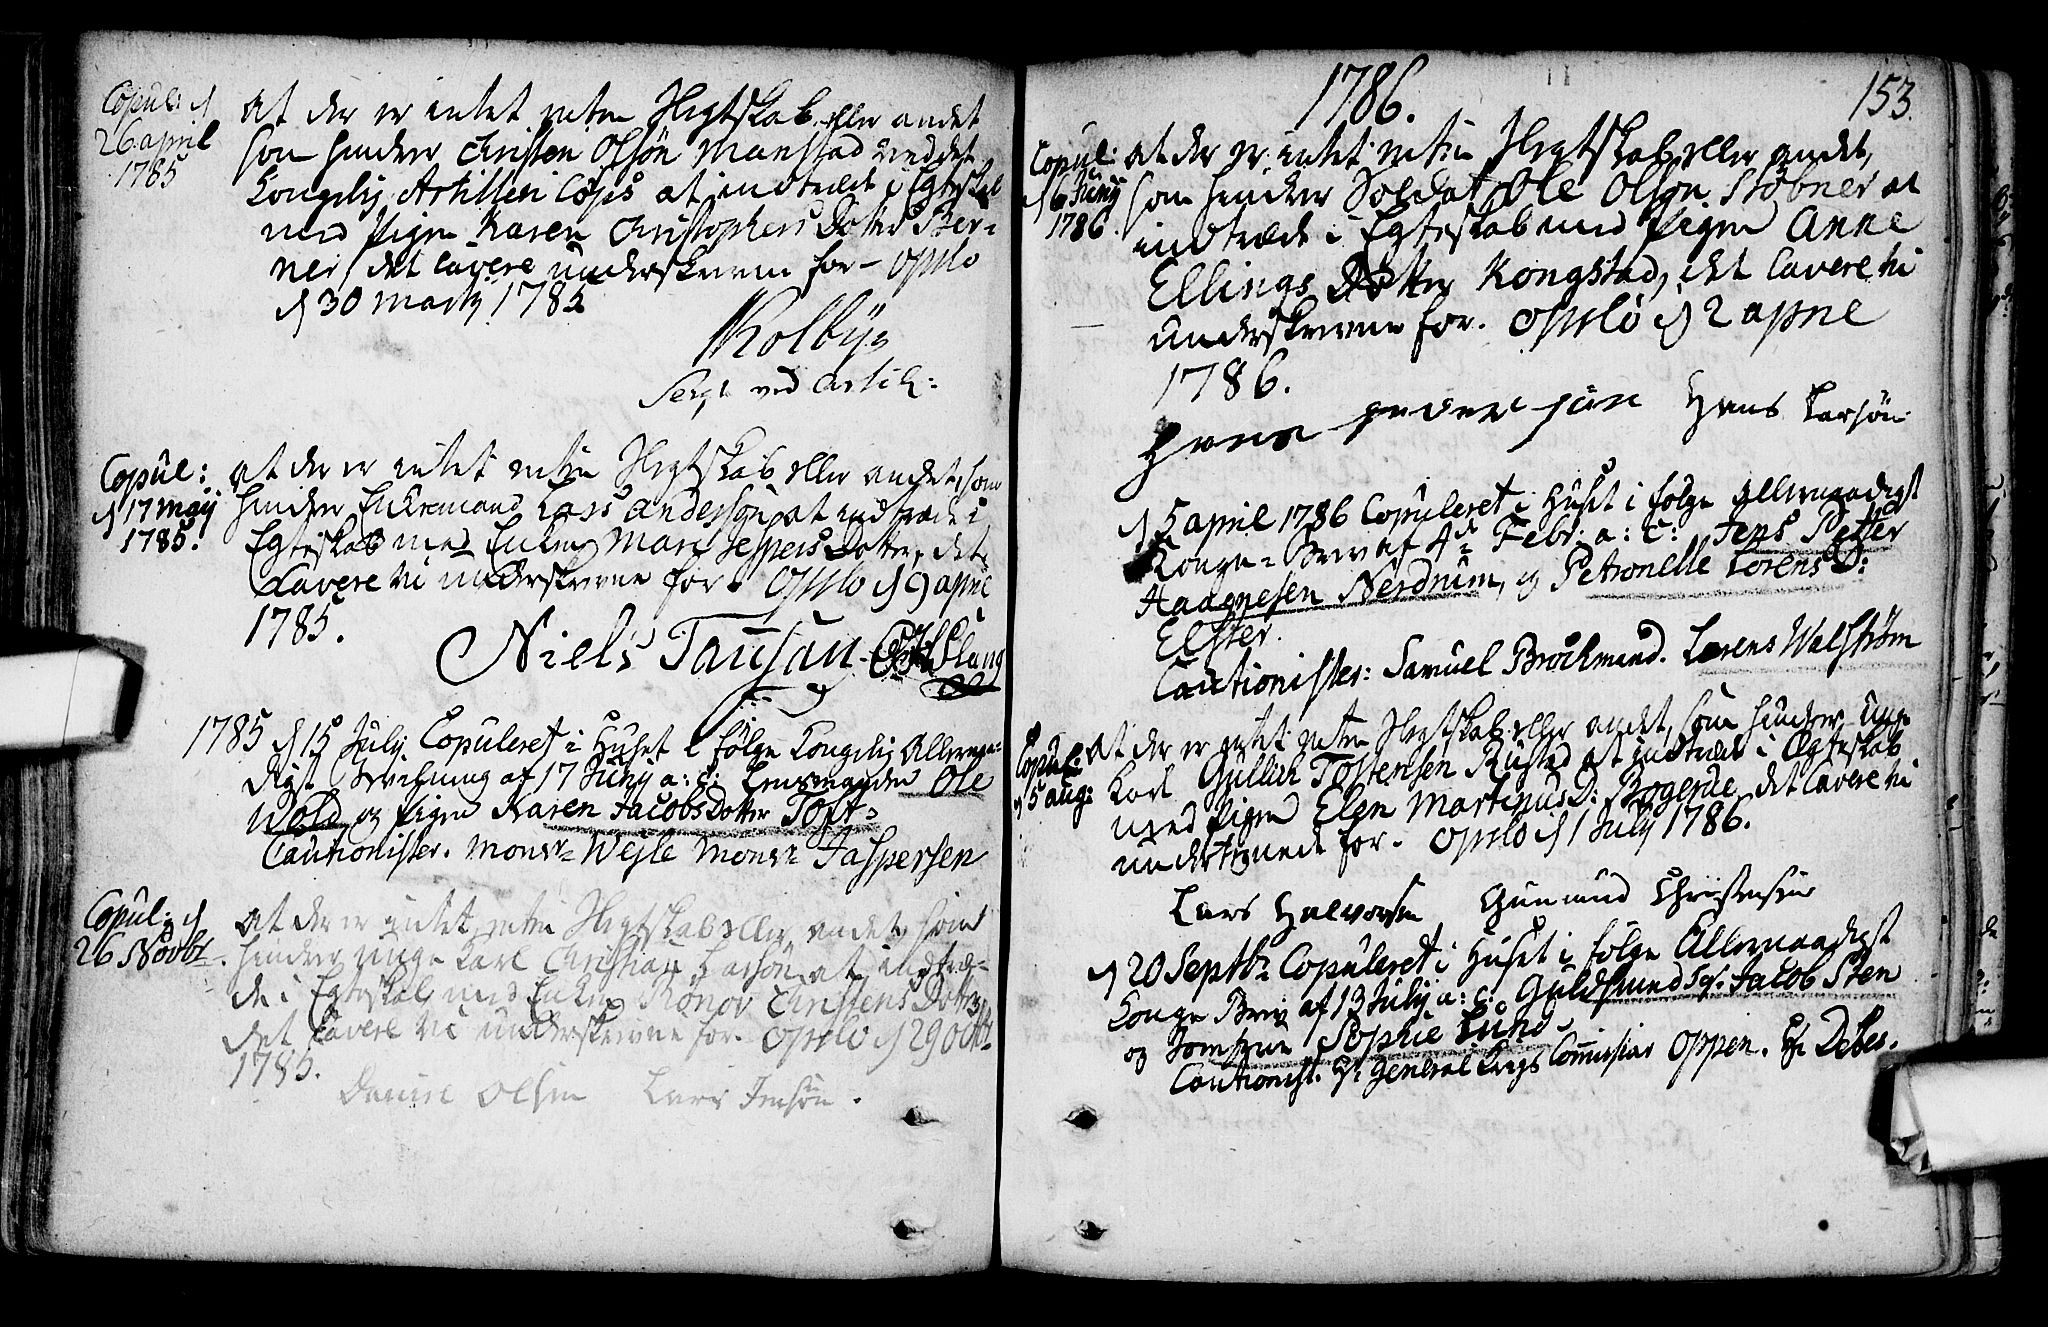 Copul: d
26 april
1785
At der er intet enten Slegtskab eller andet
som hindrer Christen Olsøn Manstad ved det
Kongelig Artilleri Cops at indtræde i Egteskab
med Pigen Karen Christophers Dotter Ber=
ner, det cavere underskrevne for - Opslo
d 30 Marty 1785
Kolbye
Serg: ved Artil:
Copul:
d 17 Maÿ
1785.
At der er intet enten Slegtskab eller andet, som
hindrer Enkemand Lars Andersøn at indtræde i
Egteskab med Enken Mari Jespers Dotter, det
cavere vi underskrevne for. Opslo d 9 april
1785.
Niels Tausan
1785 d 15 July Copuleret i Huset i følge Kongelig Allernaa=
digst bevilning af 17 Juny a: c: Lensmanden Ole
Wold, og Pigen Karen Jacobs Dotter Toft=
Cautionister. Monsr= Wejle Monsr= Jaspersen
Copul: d
26 Novbr.
At der er intet enten Slegtskab eller andet, som
hindrer unge Karl Christian Larsøn at indtræ=
de i Egteskab med Enken Rønov Christens Dotter,
det cavere vi underskrevne for. Opslo d 29 Octbr.
1785.
Daniel Olsen Lars Jensøn.
1786.
153.
Copul:
d 6 Juny
1786.
at der er intet enten Slegtskab eller andet,
som hindrer Soldat Ole Olsøn Støbner at
indtræde i Egteskab med Pigen Anne
Ellings Dotter Kongstad, det cavere vi
underskrevne for. Opslo d 2 aprie
1786.
Hans pedersøn Hans Larsøn
d 5 april 1786 Copuleret i Huset i følge Allernaadigst
Konge=Brev af 4de Febr: a: c: Jens Petter
Haagnesen Nerdrum, og Petronelle Lorens D:
Elster.
Cautionister: Samuel Brochmand. Lorens Walstrøm
Copul:
d 5 aug:
At der er intet enten Slegtskab eller andet, som hindrer unge
Karl Gullich Tostensen Rustad at indtræde i Egteskab
med Pigen Elen Martinus D: Bogerde, det cavere vi
undertegnede for. Opslo d 1 July 1786.
Lars Halvorsen Gunmund Christensen
d 20 Septbr Copuleret i Huset i følge Allernaadigst
Konge Brev af 13 July a: c: Guldsmed Sr. Jacob Sten
og Jomfrue Sophie Lund.
Cautionist. Hr. General Krigs Commissiar Oppen. Hr Debes.